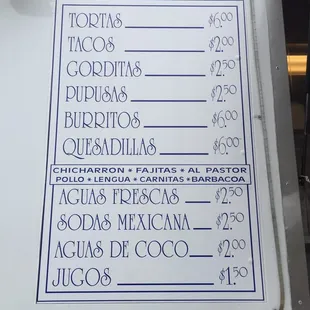 TORTAS $6.00
TACOS $2.00
GORDITAS $2.50
PUPUSAS $2.50
BURRITOS $6.00
QUESADILLAS $6.00
CHICHARRON • FAJITAS • AL PASTOR
POLLO • LENGUA • CARNITAS • BARBACOA
AGUAS FRESCAS $2.50
SODAS MEXICANA $2.50
AGUAS DE COCO $2.00
JUGOS $1.50